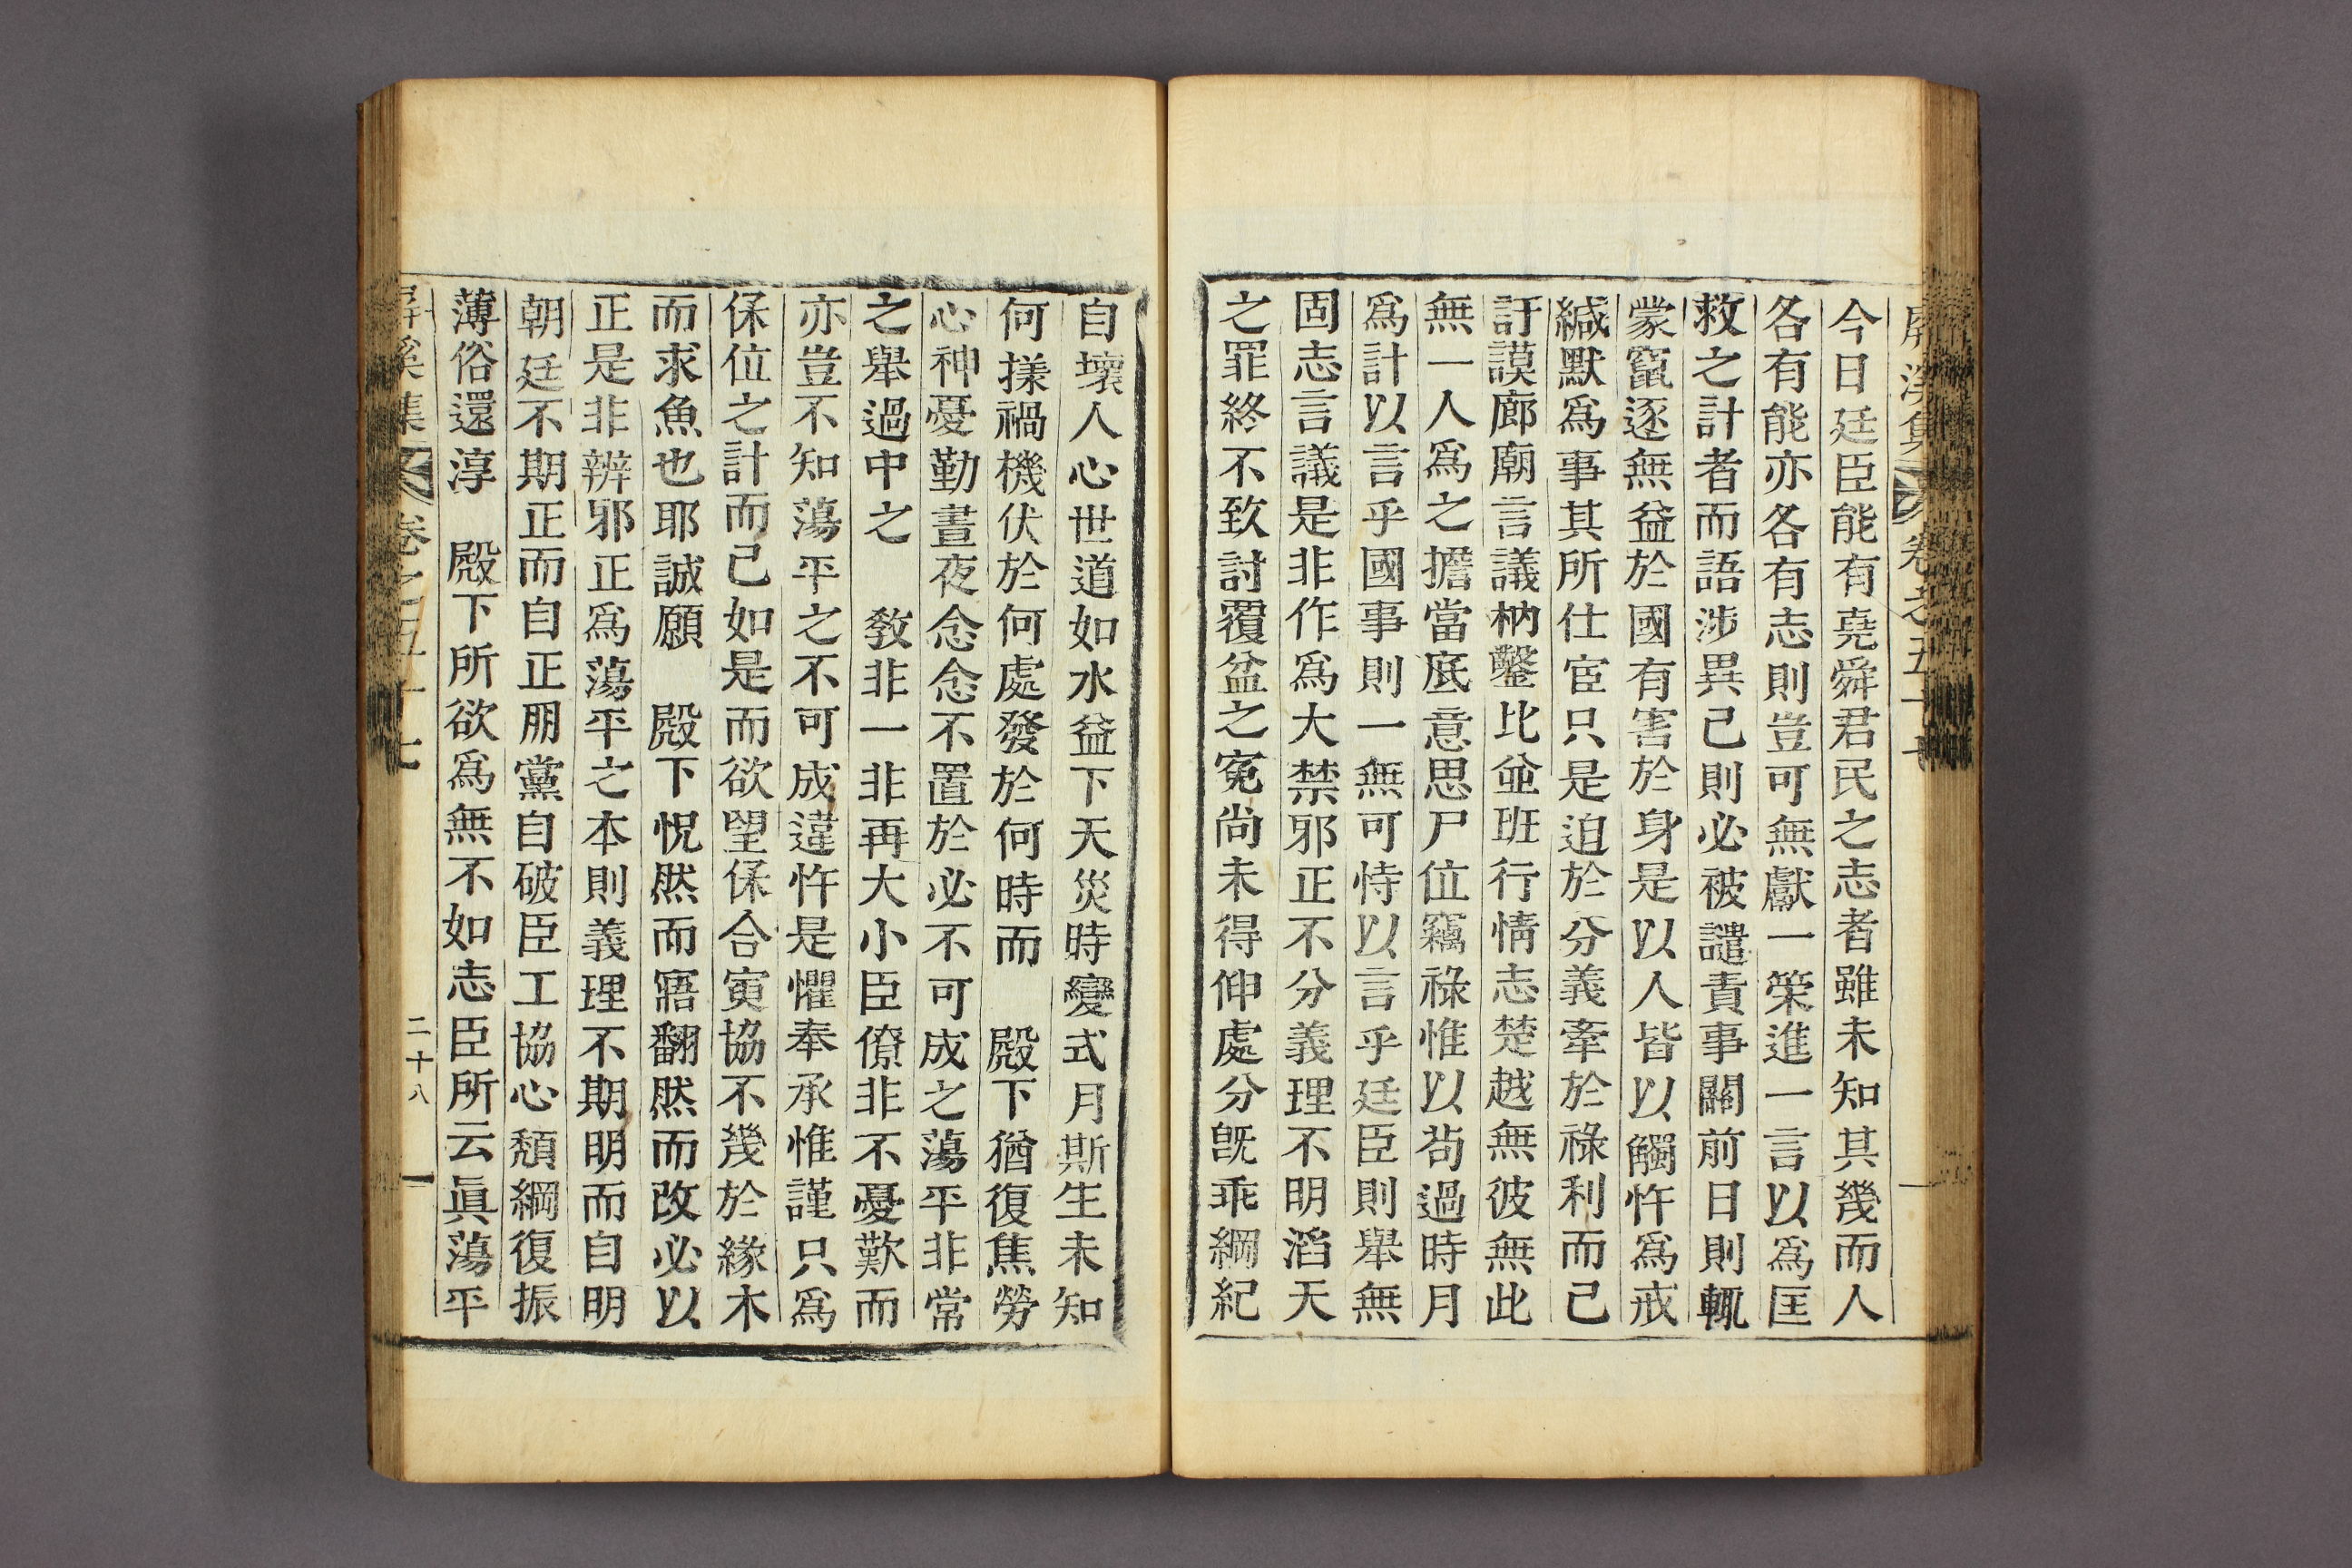 屛溪集 卷之五十七
今日廷臣能有堯舜君民之志者雖未知其幾而人
各有能亦各有志則豈可無獻一策進一言以爲匡
救之計者而語涉異己則必被譴責事關前日則輒
蒙竄逐無益於國有害於身是以人皆以觸忤爲戒
緘默爲事其所仕宦只是迫於分義牽於祿利而已
訏謨廊廟言議枘鑿比並班行情志楚越無彼無此
無一人爲之擔當底意思尸位竊祿惟以苟過時月
爲計以言乎國事則一無可恃以言乎廷臣則擧無
固志言議是非作爲大禁邪正不分義理不明滔天
之罪終不致討覆盆之寃尙未得伸處分旣乖綱紀
自壞人心世道如水益下天災時變式月斯生未知
何㨾禍機伏於何處發於何時而 殿下猶復焦勞
心神憂勤晝夜念念不置於必不可成之蕩平非常
之舉過中之 敎非一非再大小臣僚非不憂歎而
亦豈不知蕩平之不可成違忤是懼奉承惟謹只爲
保位之計而已如是而欲望保合寅協不幾於緣木
而求魚也耶誠願 殿下怳然而寤翻然而改必以
正是非辨邪正爲蕩平之本則義理不期明而自明
朝廷不期正而自正朋黨自破臣工協心頹綱復振
薄俗還淳 殿下所欲爲無不如志臣所云眞蕩平
屛溪集 卷之五十七 二十八